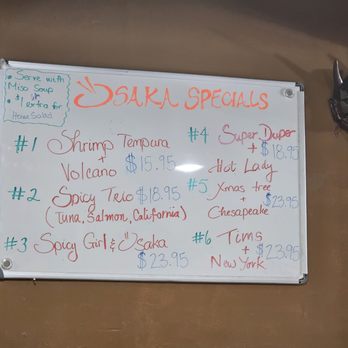 • Serve with
Miso Soup
• $1 extra for
House Salad
OSAKA SPECIALS
#1 Shrimp Tempura
+
Volcano $15.95
#2 Spicy Trio $18.95
(Tuna, Salmon, California)
#3 Spicy Girl & Osaka
$23.95
#4 Super Duper
+ $18.95
Hot Lady
#5 Xmas tree
+ $23.95
Chesapeake
#6 Tims
+ $23.95
New York